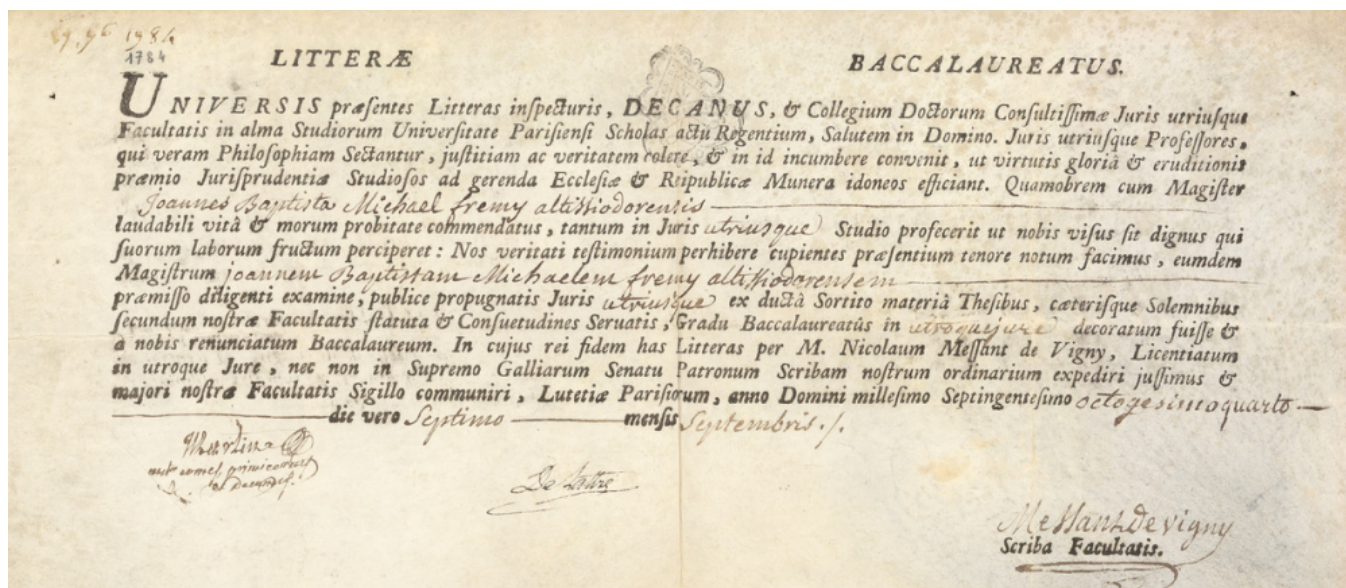 1784
LITTERÆ BACCALAUREATUS.
UNIVERSIS præsentes Litteras inspecturis, DECANUS, & Collegium Doctorum Consultissimæ Juris utriusque
Facultatis in alma Studiorum Universitate Parisiensi Scholas actu Regentium, Salutem in Domino. Juris utriusque Professores,
qui veram Philosophiam Sectantur, justitiam ac veritatem colere, & in id incumbere convenit, ut virtutis gloriâ & eruditionis
præmio Jurisprudentiæ Studiosos ad gerenda Ecclesiæ & Reipublicæ Munera idoneos efficiant. Quamobrem cum Magister
Joannes Baptista Michael fremy altissiodorensis
laudabili vitâ & morum probitate commendatus, tantum in Juris utriusque Studio profecerit ut nobis visus sit dignus qui
suorum laborum fructum perciperet : Nos veritati testimonium perhibere cupientes præsentium tenore notum facimus, eumdem
Magistrum joannem Baptistam Michaelem fremy altissiodorensem
præmisso diligenti examine, publice propugnatis Juris utriusque ex ductâ Sortito materiâ Thesibus, cæterisque Solemnibus
secundum nostræ Facultatis statuta & Consuetudines Servatis, Gradu Baccalaureatûs in utroque jure decoratum fuisse &
à nobis renunciatum Baccalaureum. In cujus rei fidem has Litteras per M. Nicolaum Messant de Vigny, Licentiatum
in utroque Jure, nec non in Supremo Galliarum Senatu Patronum Scribam nostrum ordinarium expediri jussimus &
majori nostræ Facultatis Sigillo communiri, Lutetiæ Parisiorum, anno Domini millesimo Septingentesimo octogesimo quarto
die vero Septimo mensis Septembris ./.
De Lattre
Messant De vigny
Scriba Facultatis.